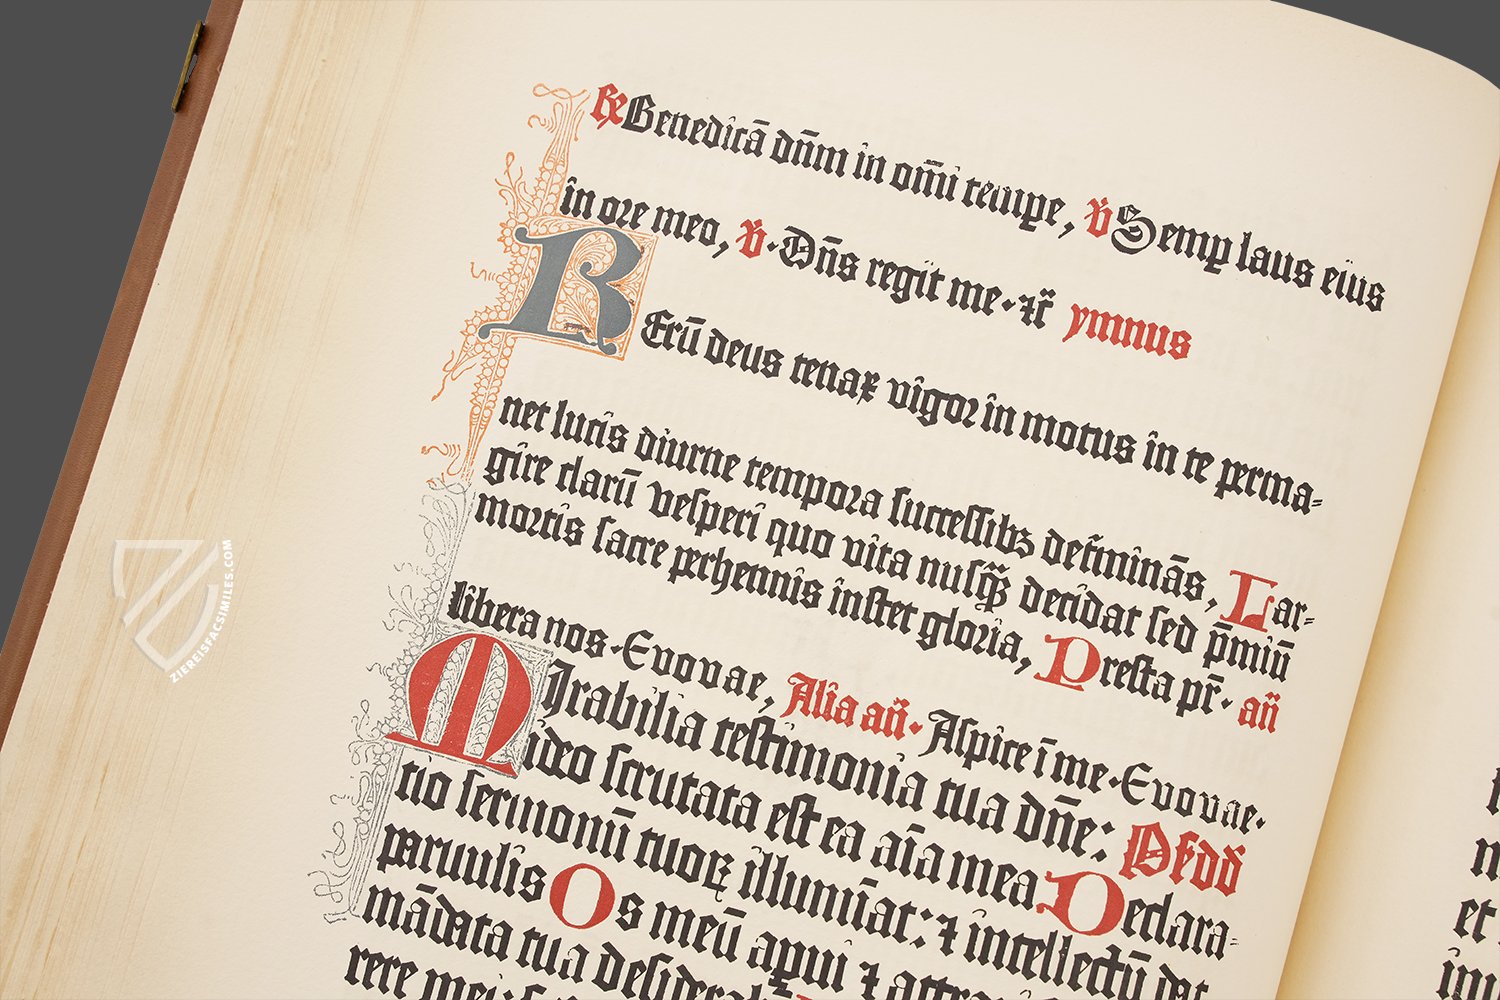 ℟ Benedicā dn̄m in om̄i tempe, ℣ Semꝑ laus eius
in ore meo, ℣. Dn̄s regit me. ⁊c̄ ymnus
RErū deus tenax vigor in motus in te ꝑma-
net lucis diurne tempora successibꝫ det̄minās, Lar-
gire clarū vesperi quo vita nusq̄ꝫ decidat sed p̄miū
mortis sacre ꝑhennis instet gloria, Presta pr̄. an̄
libera nos. Evovae, Alia an̄. Aspice ī me. Evovae.
MIrabilia testimonia tua dn̄e: Ps̄ dd̄
ideo scrutata est ea aīa mea Declara-
tio sermonū tuoꝝ illumīat: ⁊ intellectū dat
paruulis Os meū apui ⁊ attraxi
mādata tua desiderabā
rere mei:
net
et
im
ZIEREISFACSIMILES.COM